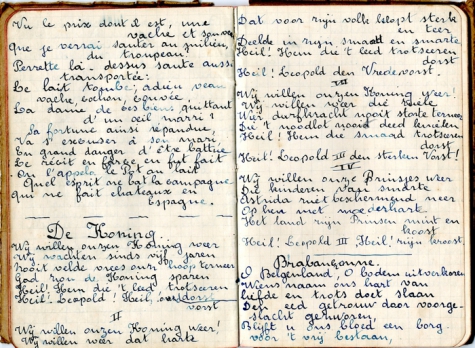 Vu le prix dont il est, une
vache et son veau
Que je verrai sauter au milieu
du troupeau
Perrette là-dessus saute aussi
transportée:
Le lait tombe; adieu veau
vache cochon, couvée
La dame de ces biens quittant
d'un œil marri
Sa fortune ainsi répandue
Va s'excuser à son mari
En grand danger d'être battue
Le récit en farce en fut fait
On l'appela le Pot au lait
Quel esprit ne bat la campagne
qui ne fait chateaux en
Espagne.
De Koning.
Wij willen onzen Koning weer
Wij wachten sinds vijf jaren
Nooit velde vrees onz' hoop terneer
God zou de Koning sparen
Heil! Hem die 't leed trotseeren
dorst
Heil! Leopold! Heil, vorst
II
Wij willen onzen Koning weer!
Wij willen weer dat harte
Dat voor zijn volk klopt sterk
en teer
Deelde in zijn smaad en smarte
Heil! Hem die 't leed trotseeren
dorst
Heil! Leopold den Vredevorst.
III
Wij willen onzen Koning weer!
Wij willen weer die
Wier durfkracht nooit storte terneer
Die 't noodlot nooit deed knielen
Heil! Hem die smaad trotseeren
dorst
Heil! Leopold III den sterken Vorst!
IV
Wij willen onze Prinsjes weer
Die kinderen van smarte
Astrida niet beschermend meer
Op hen met moederharte
Het land zijn Prinsen mint en
kroost
Heil! Leopold III Heil! zijn kroost
Brabançonne.
O Belgenland, O bodem uitverkoren
Wiens naam ons hart van
liefde en trots doet slaan
Den eed getrouw door voorge-
slacht gezworen,
Blijft U ons bloed een borg
voor 't vrij bestaan,